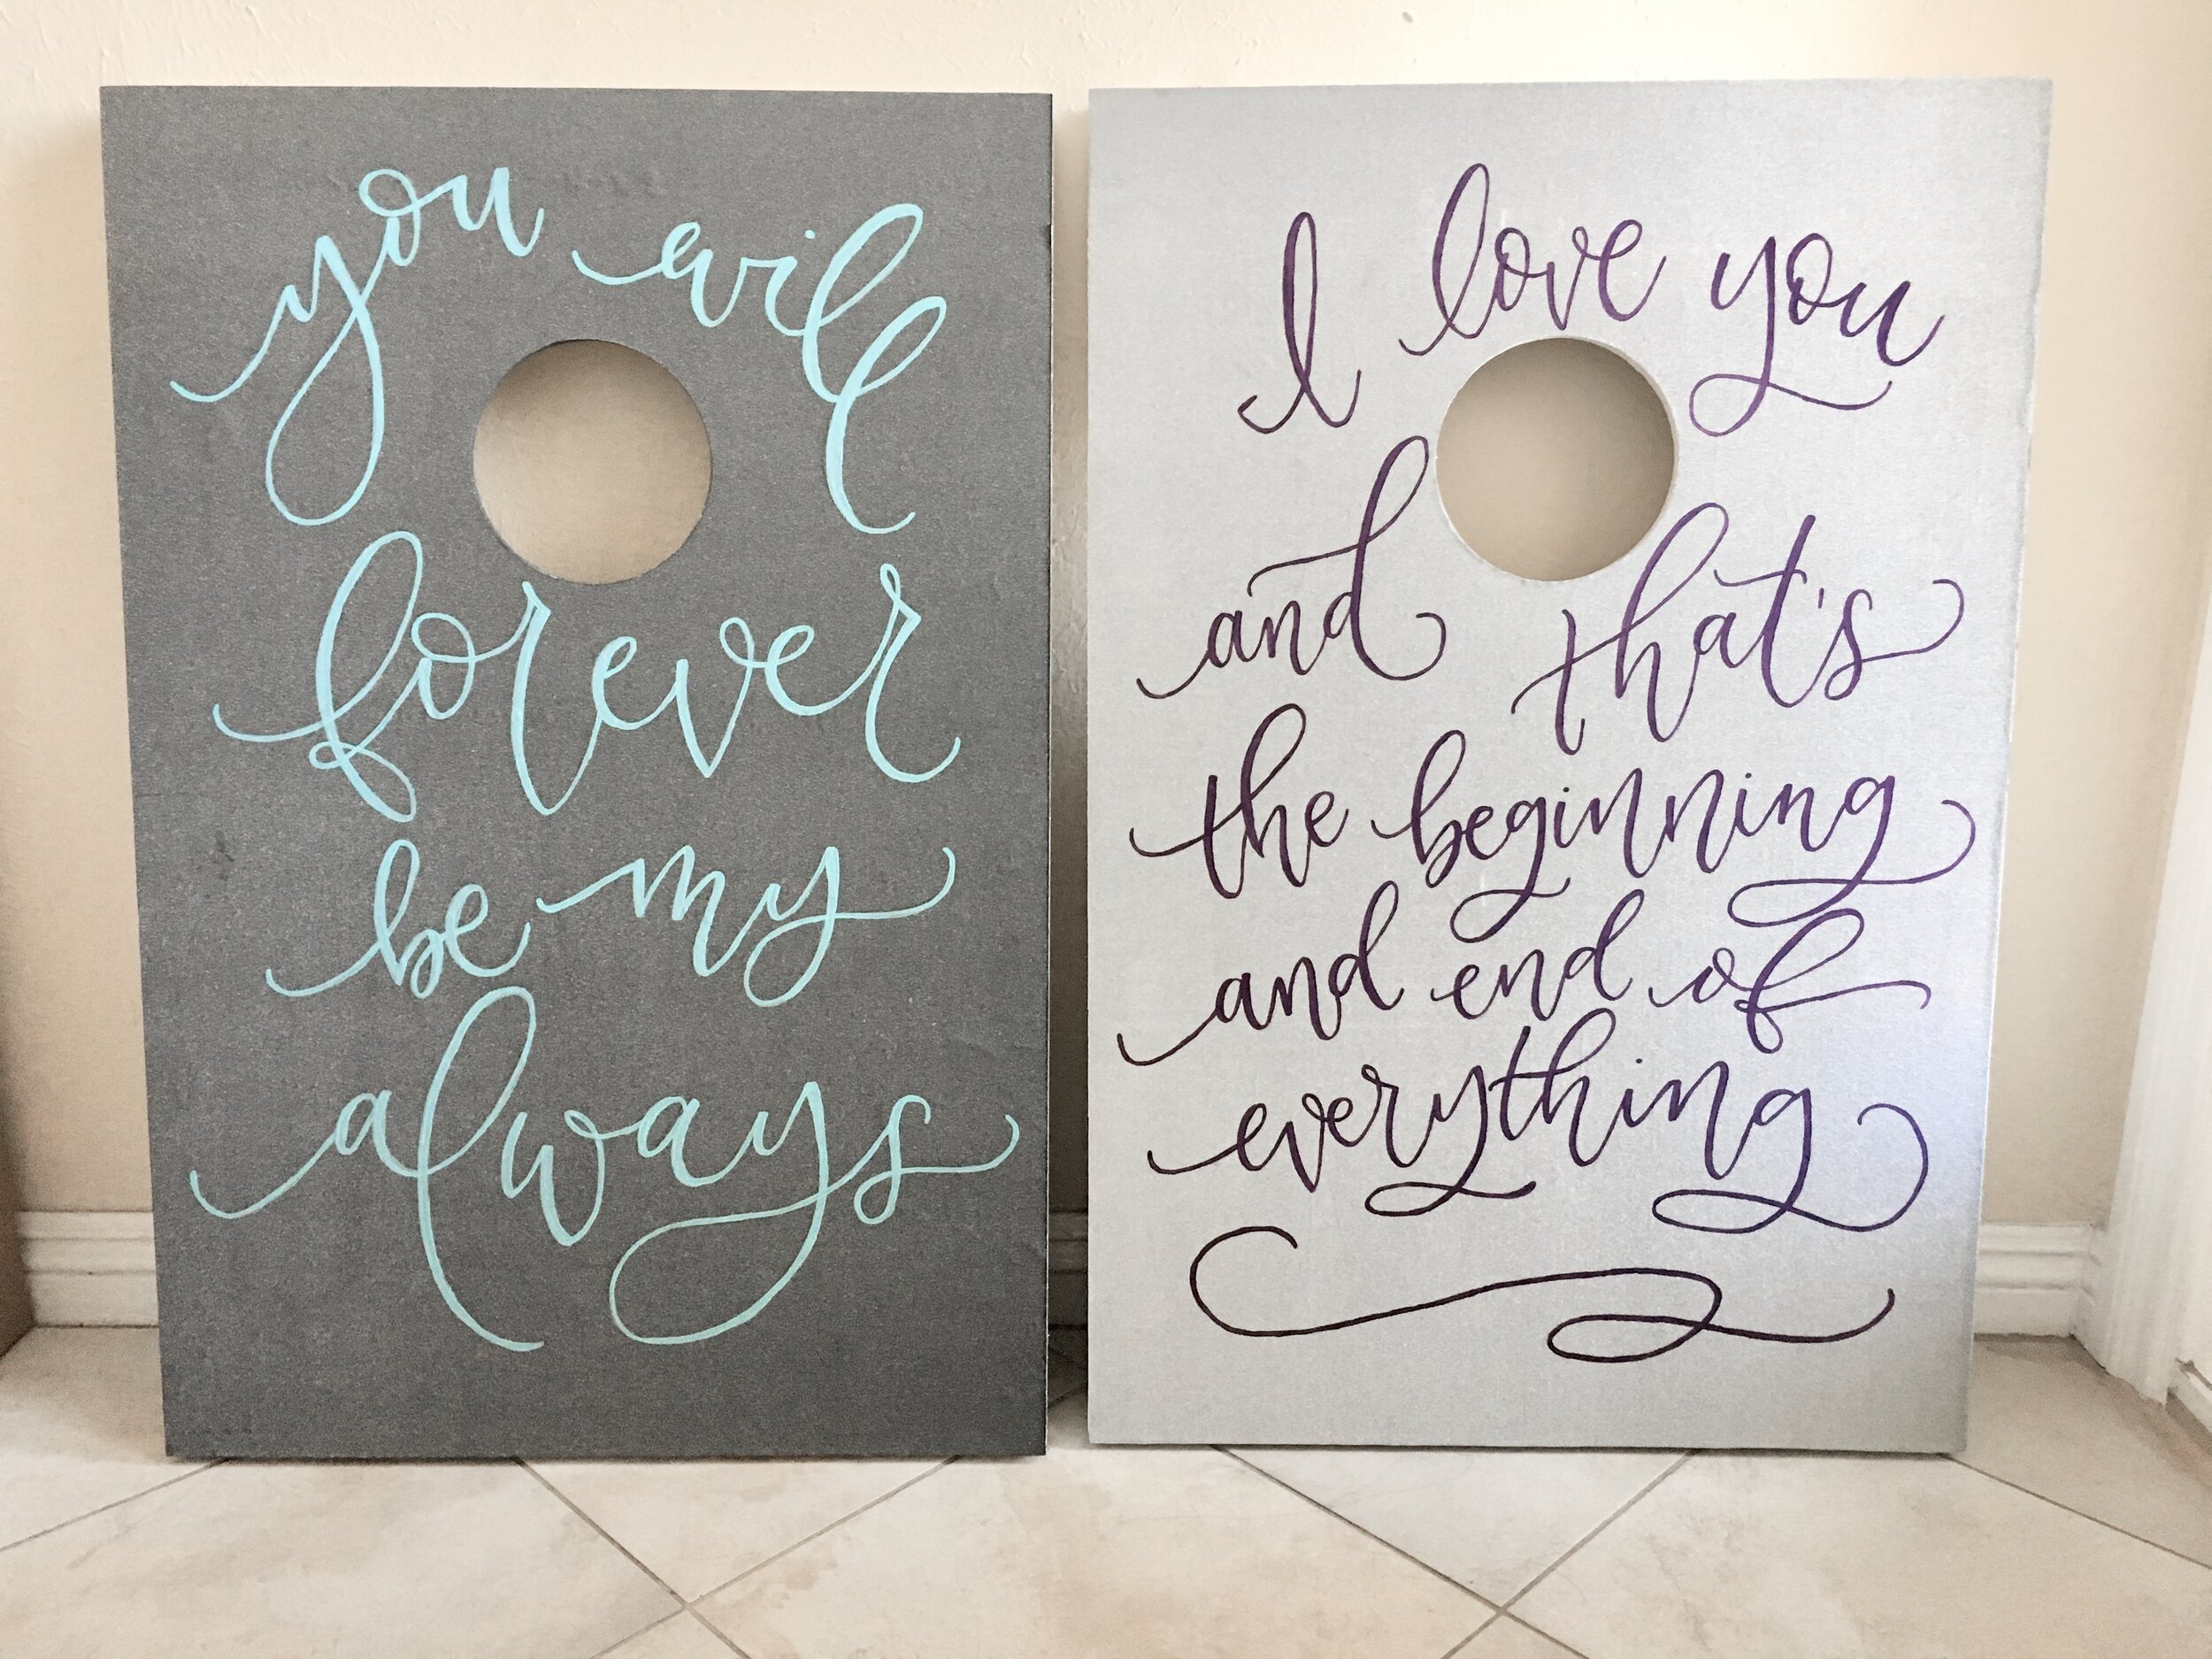 you will
forever
be my
always
I love you
and that's
the beginning
and end of
everything